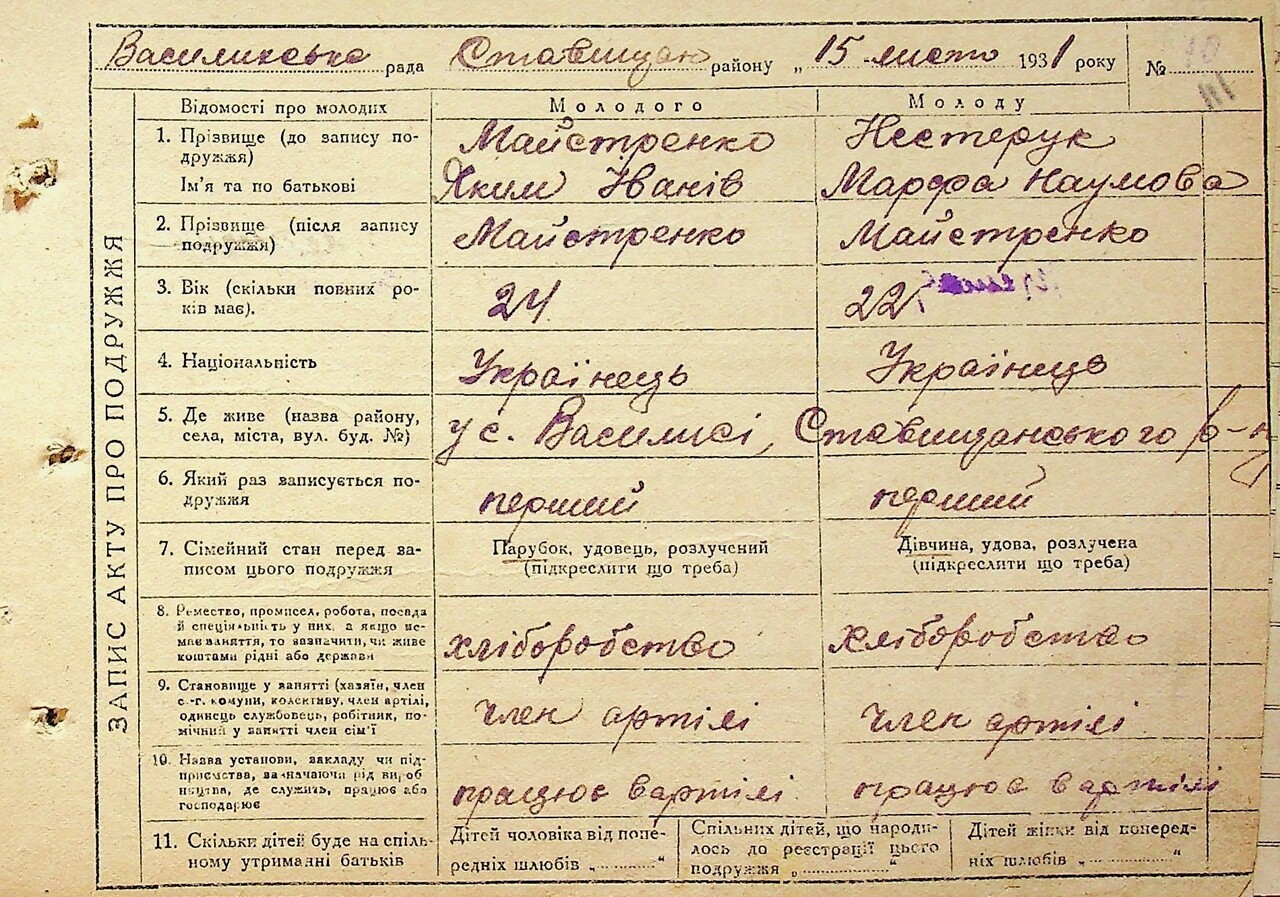 Василиська рада Ставищан району „ 15 листо 1931 року №
ЗАПИС АКТУ ПРО ПОДРУЖЖЯ
Відомості про молодих Молодого Молоду
1. Прізвище (до запису по- Майстренко Нестерук
дружжя)
Ім'я та по батькові Яким Іванів Марфа Наумова
2. Прізвище (після запису Майстренко Майстренко
подружжя)
3. Вік (скільки повних ро- 24 22
ків має).
4. Національність Українець Українець
5. Де живе (назва району, у с. Василисі, Ставищанського р-ну
села, міста, вул. буд. №)
6. Який раз записується по- перший перший
дружжя
7. Сімейний стан перед за- Парубок, удовець, розлучений Дівчина, удова, розлучена
писом цього подружжя (підкреслити що треба) (підкреслити що треба)
8. Ремество, промисел, робота, посада
й спеціяльність у них, а якщо не-
має заняття, то зазначити, чи живе хліборобство хліборобство
коштами рідні або держави
9. Становище у занятті (хазяїн, член
с.-г. комуни, колективу, член артілі, член артілі член артілі
одинець службовець, робітник, по-
мічний у занятті член сім'ї
10. Назва установи, закладу чи під-
приємства, зазначаючи рід вироб
ництва, де служить, працює або працює в артілі працює в артілі
господарює
11. Скільки дітей буде на спіль- Дітей чоловіка від попе- Спільних дітей, що народи- Дітей жінки від поперед-
ному утриманні батьків редніх шлюбів „ “ лось до реєстрації цього ніх шлюбів „ “
подружжя „ “